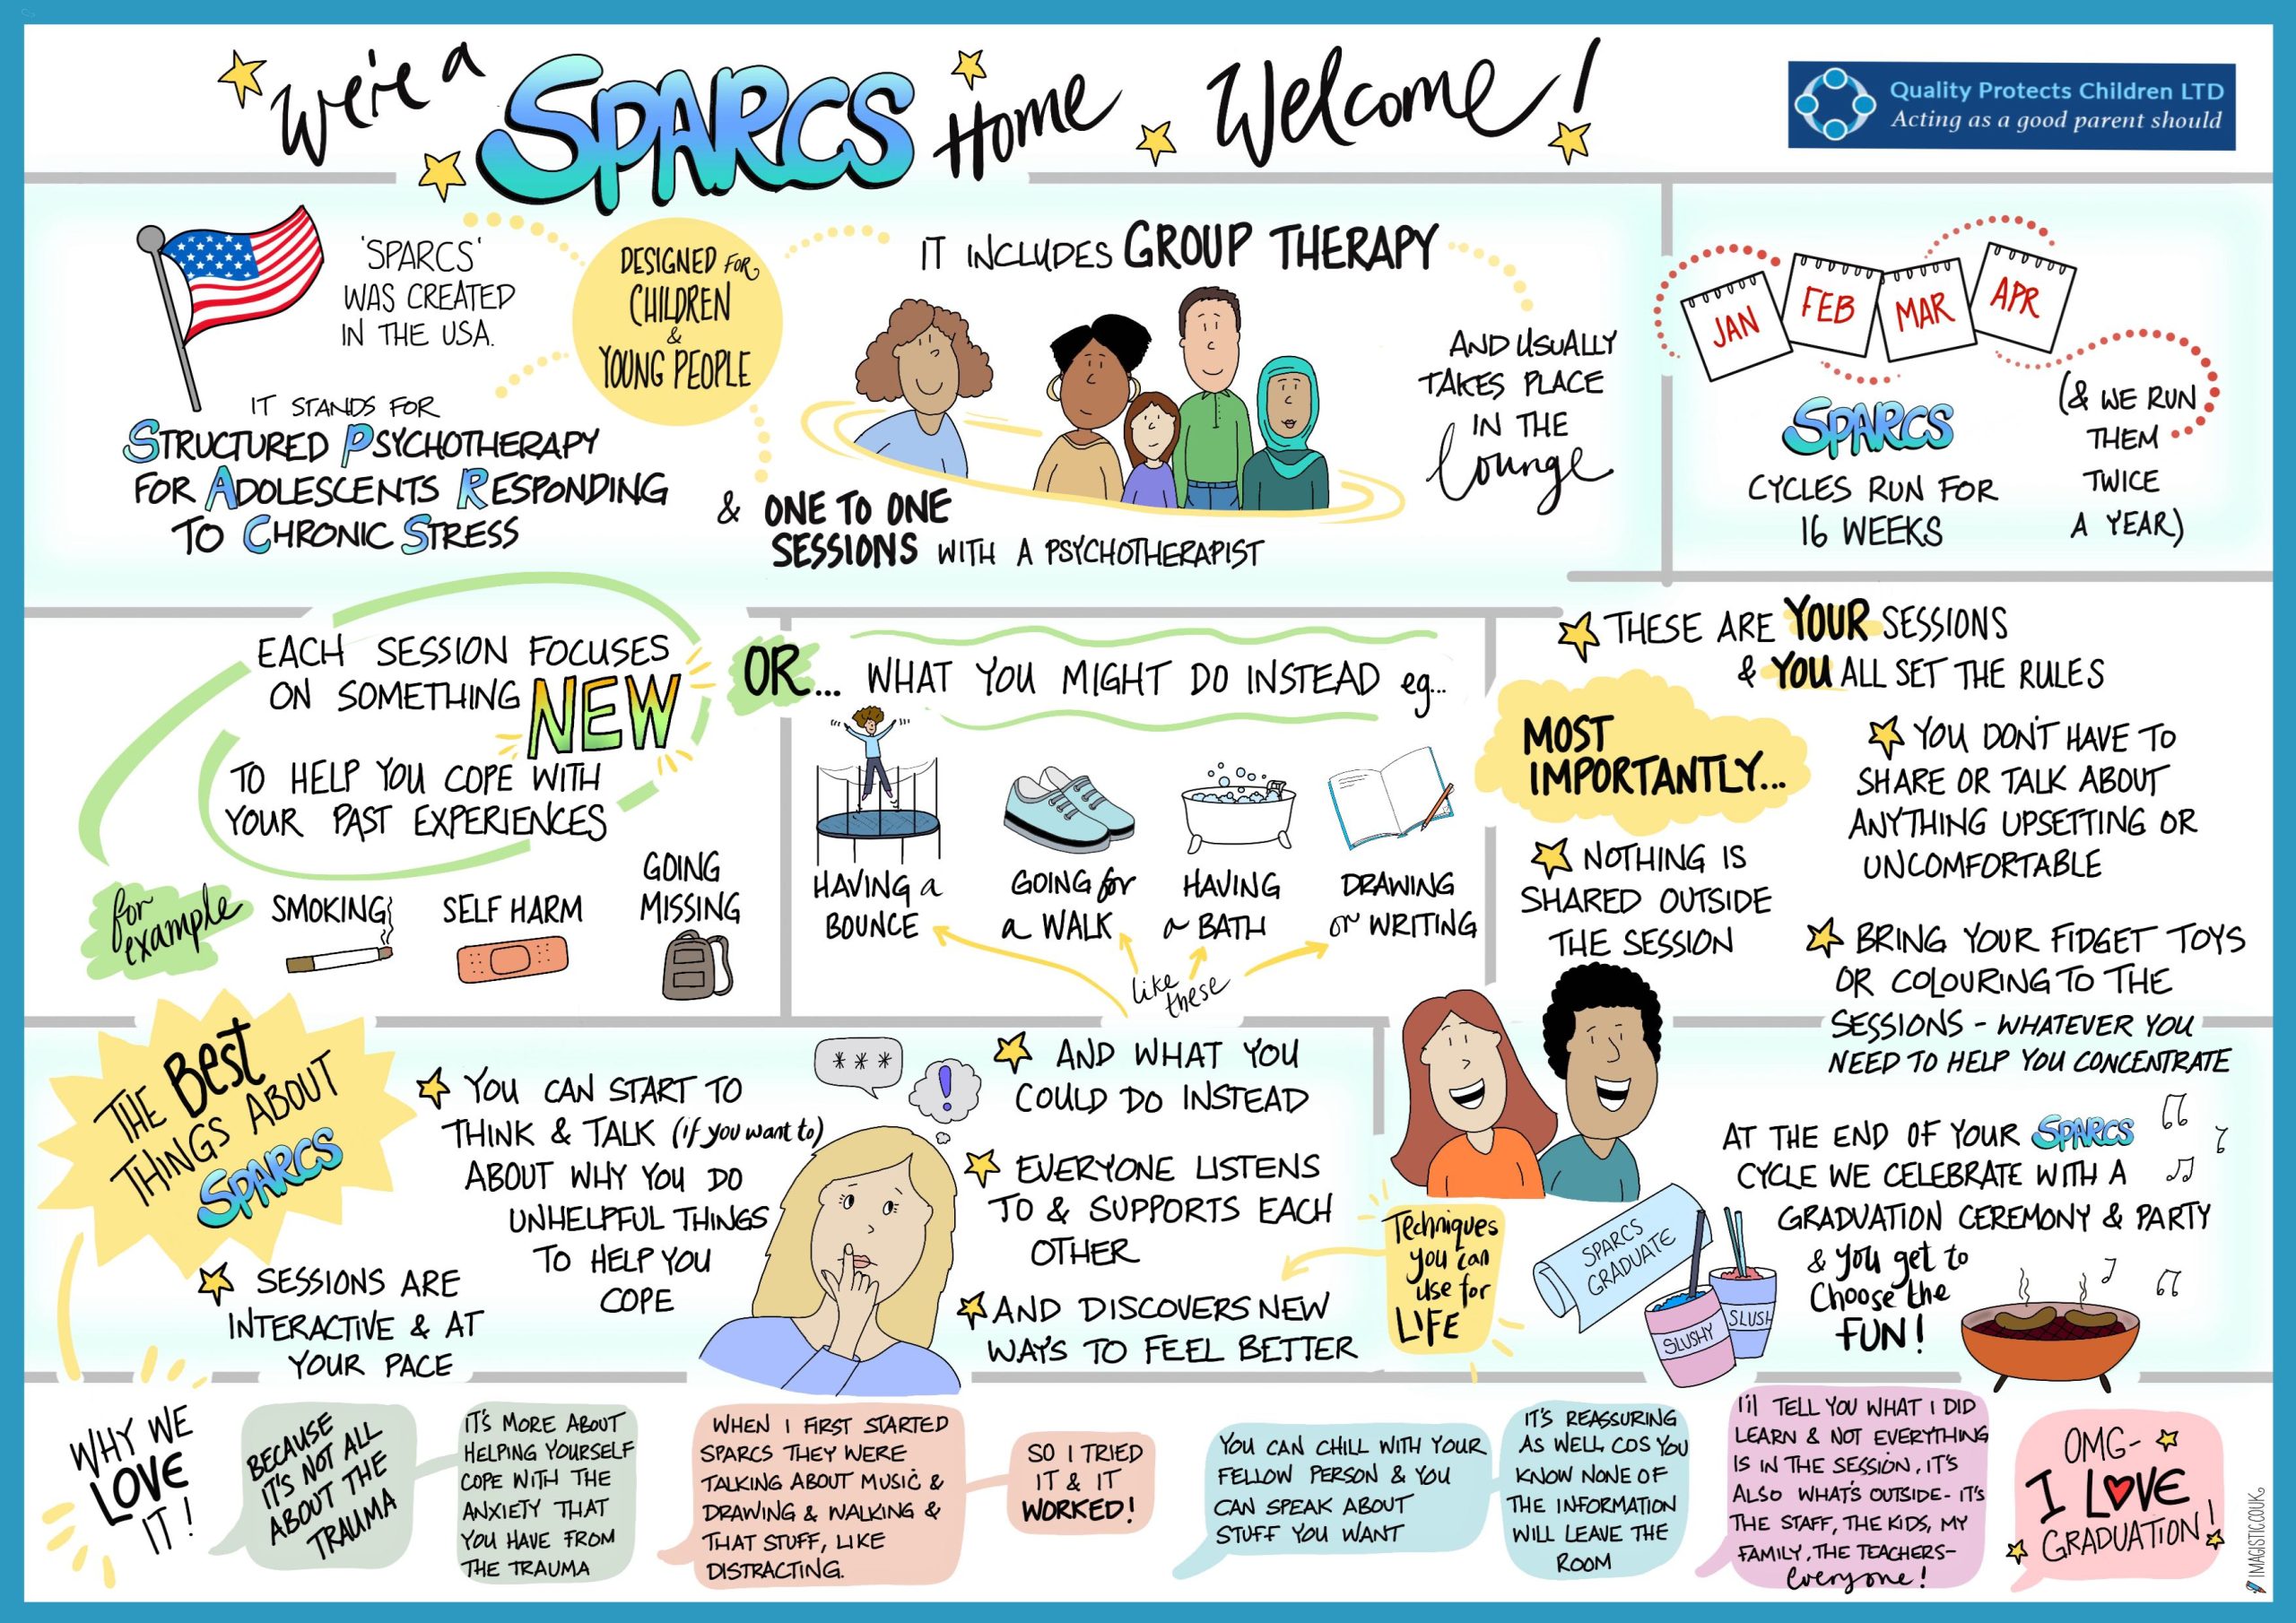 We're a SPARCS Home Welcome!
Quality Protects Children LTD
Acting as a good parent should
'SPARCS'
WAS CREATED
IN THE USA.
IT STANDS FOR
STRUCTURED PSYCHOTHERAPY
FOR ADOLESCENTS RESPONDING
TO CHRONIC STRESS
DESIGNED FOR
CHILDREN
&
YOUNG PEOPLE
IT INCLUDES GROUP THERAPY
AND USUALLY
TAKES PLACE
IN THE
Lounge
& ONE TO ONE
SESSIONS WITH A PSYCHOTHERAPIST
JAN
FEB
MAR
APR
SPARCS
CYCLES RUN FOR
16 WEEKS
(& WE RUN
THEM
TWICE
A YEAR)
EACH SESSION FOCUSES
ON SOMETHING NEW
TO HELP YOU COPE WITH
YOUR PAST EXPERIENCES
for
example
SMOKING
SELF HARM
GOING
MISSING
OR... WHAT YOU MIGHT DO INSTEAD eg...
HAVING a
BOUNCE
GOING for
a WALK
HAVING
a BATH
DRAWING
or WRITING
like
these
THESE ARE YOUR SESSIONS
& YOU ALL SET THE RULES
MOST
IMPORTANTLY...
NOTHING IS
SHARED OUTSIDE
THE SESSION
YOU DON'T HAVE TO
SHARE OR TALK ABOUT
ANYTHING UPSETTING OR
UNCOMFORTABLE
BRING YOUR FIDGET TOYS
OR COLOURING TO THE
SESSIONS - WHATEVER YOU
NEED TO HELP YOU CONCENTRATE
THE Best
THINGS ABOUT
SPARCS
SESSIONS ARE
INTERACTIVE & AT
YOUR PACE
YOU CAN START TO
THINK & TALK (if you want to)
ABOUT WHY YOU DO
UNHELPFUL THINGS
TO HELP YOU
COPE
***
!
AND WHAT YOU
COULD DO INSTEAD
EVERYONE LISTENS
TO & SUPPORTS EACH
OTHER
AND DISCOVERS NEW
WAYS TO FEEL BETTER
Techniques
you can
use for
LIFE
SPARCS
GRADUATE
SLUSHY
SLUSH
AT THE END OF YOUR SPARCS
CYCLE WE CELEBRATE WITH A
GRADUATION CEREMONY & PARTY
& you get to
Choose the
FUN!
WHY WE
LOVE
IT!
BECAUSE
IT'S NOT ALL
ABOUT THE
TRAUMA
IT'S MORE ABOUT
HELPING YOURSELF
COPE WITH THE
ANXIETY THAT
YOU HAVE FROM
THE TRAUMA
WHEN I FIRST STARTED
SPARCS THEY WERE
TALKING ABOUT MUSIC &
DRAWING & WALKING &
THAT STUFF, LIKE
DISTRACTING.
SO I TRIED
IT & IT
WORKED!
YOU CAN CHILL WITH YOUR
FELLOW PERSON & YOU
CAN SPEAK ABOUT
STUFF YOU WANT
IT'S REASSURING
AS WELL COS YOU
KNOW NONE OF
THE INFORMATION
WILL LEAVE THE
ROOM
I'll TELL YOU WHAT I DID
LEARN & NOT EVERYTHING
IS IN THE SESSION, IT'S
ALSO WHAT'S OUTSIDE - IT'S
THE STAFF, THE KIDS, MY
FAMILY, THE TEACHERS-
Everyone!
OMG-
I LOVE
GRADUATION!
IMAGISTIC.CO.UK